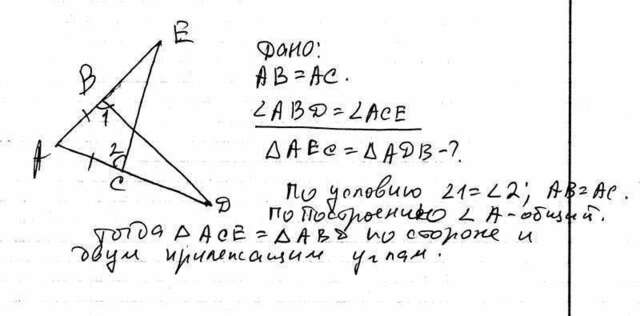 E
B
1
A
2
C
D
Дано:
AB = AC.
∠ABD = ∠ACE
△AEC = △ADB - ?
По условию ∠1 = ∠2; AB = AC.
по построению ∠A - общий.
тогда △ACE = △ABD по стороне и
двум прилежащим углам.